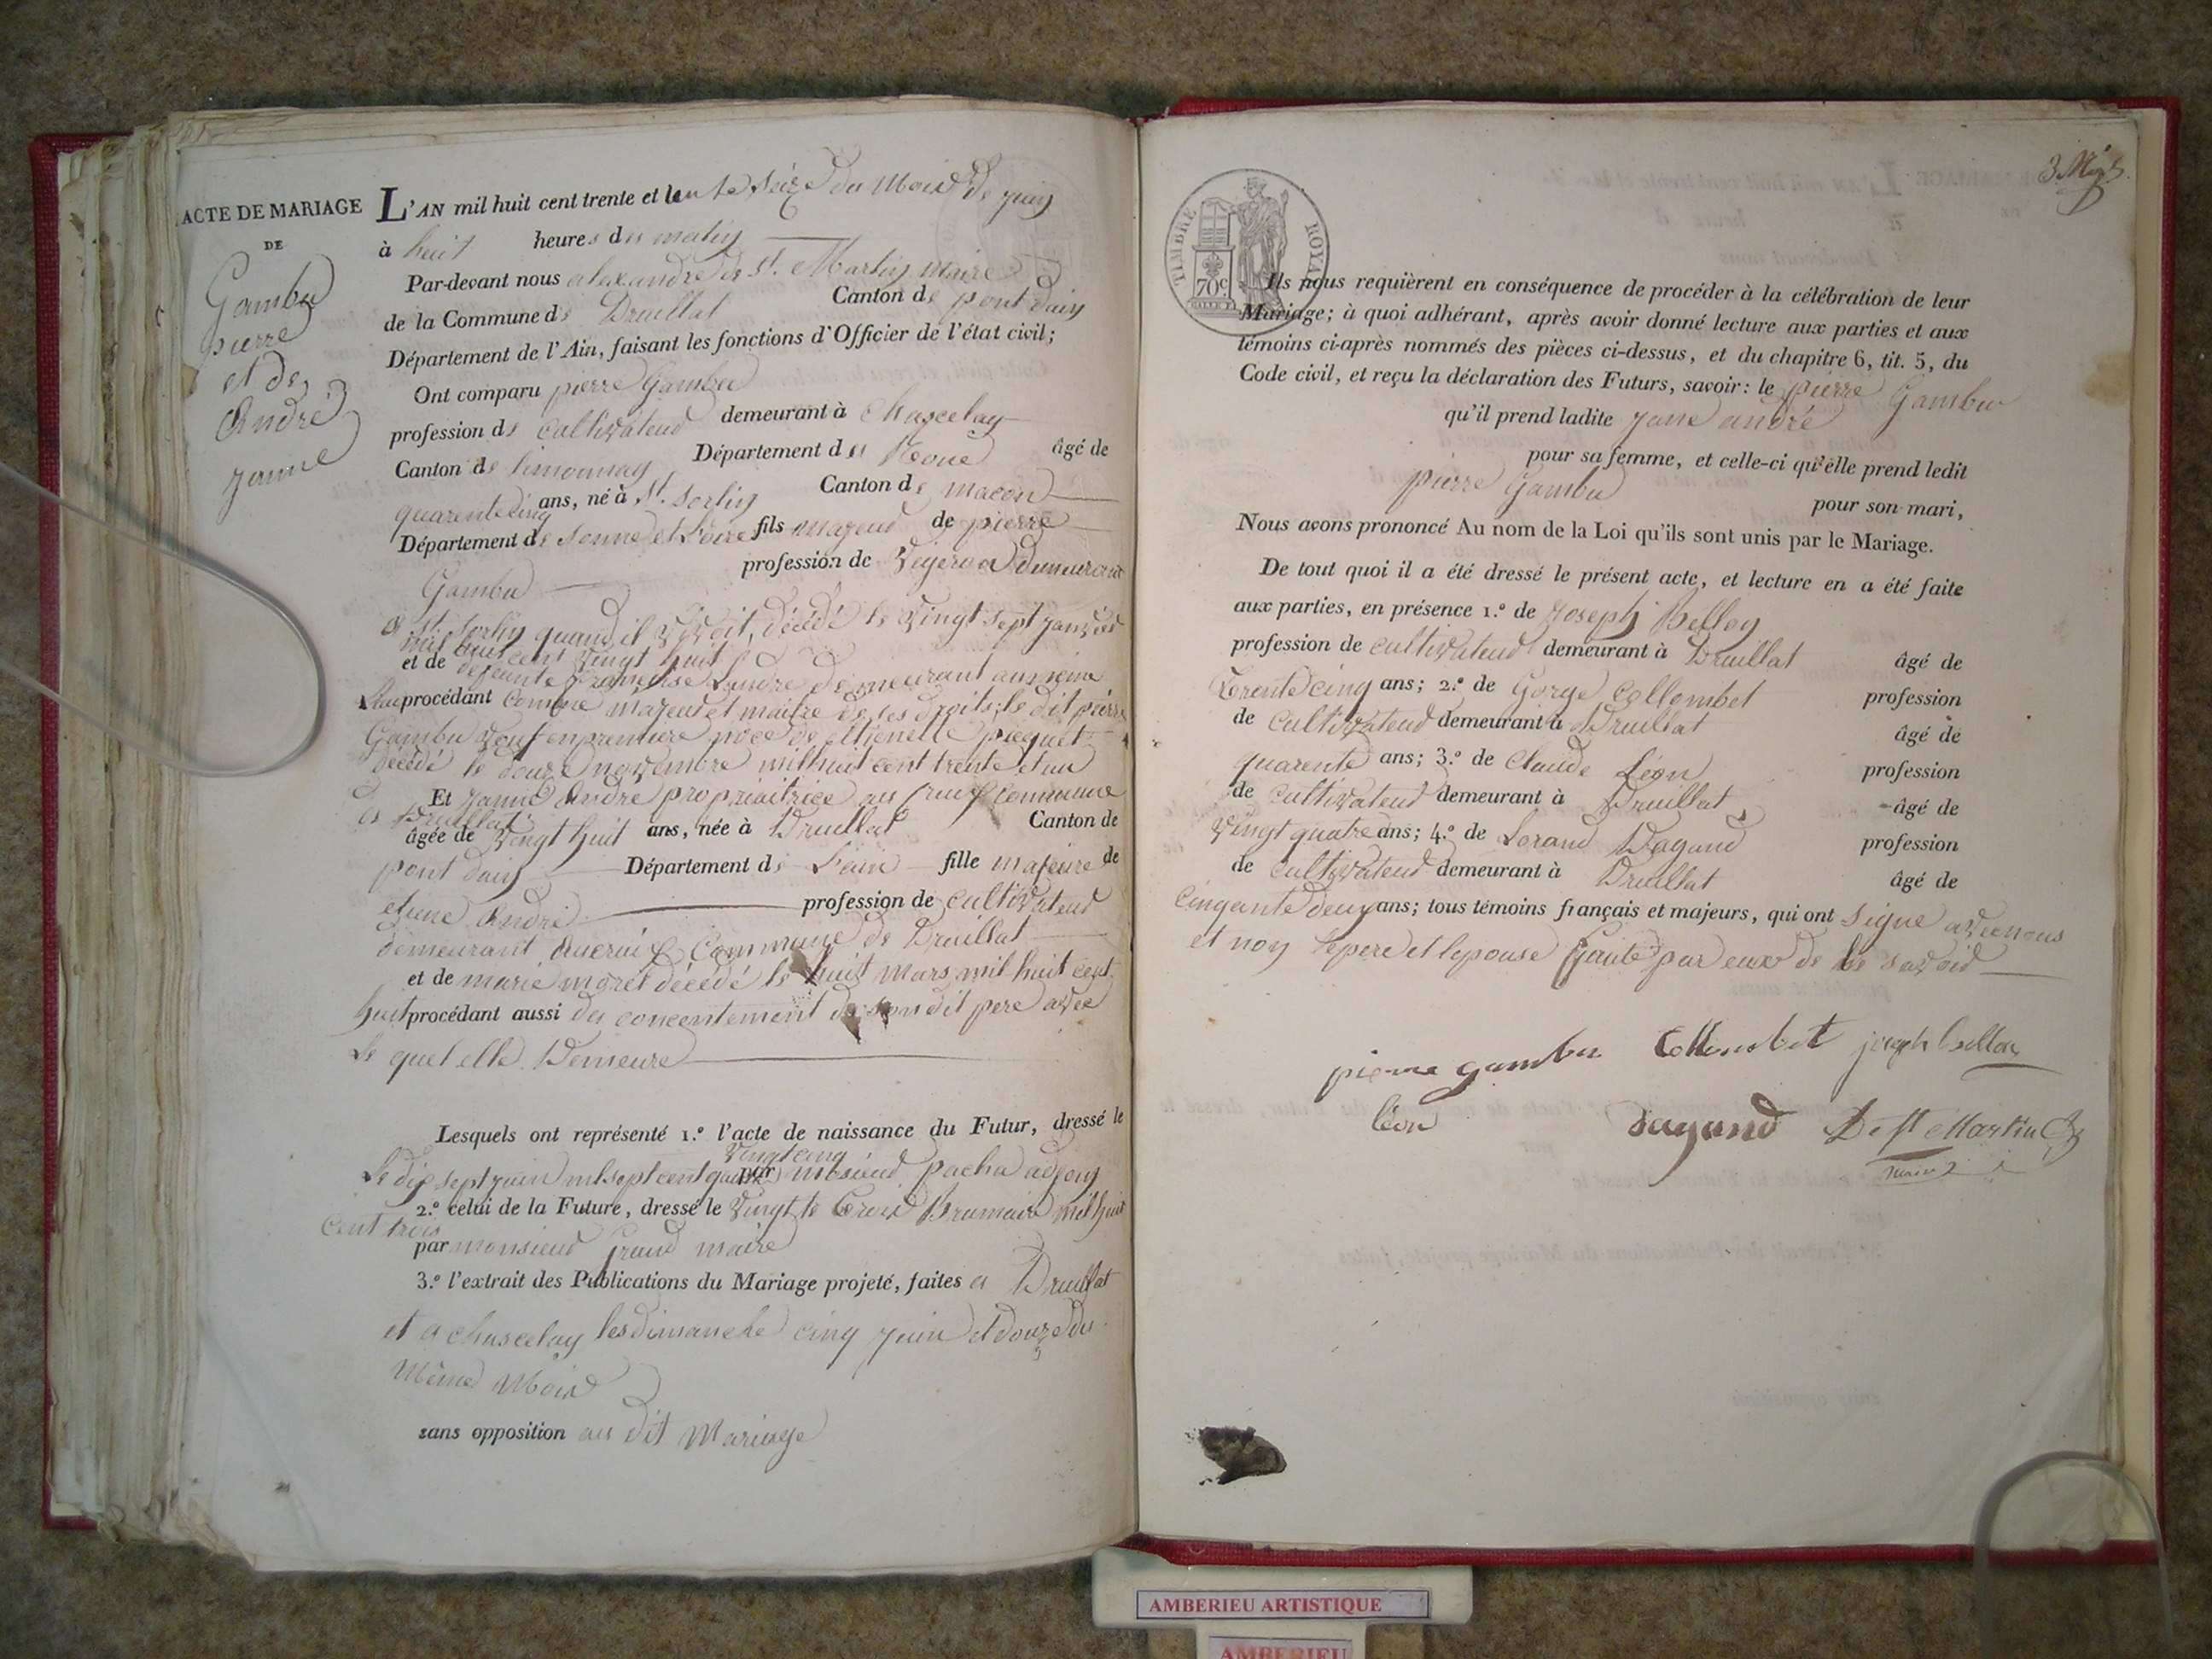 ACTE DE MARIAGE
DE
Gambu
pierre
et de
André
janne
L'AN mil huit cent trente et un le seize du mois de juin
à huit heures du matin
Par-devant nous alexandre de St. Martin maire
de la Commune de Druillat Canton de pont dain
Département de l'Ain, faisant les fonctions d'Officier de l'état civil;
Ont comparu pierre Gambu
profession de cultivateur demeurant à Chascelay
Canton de limonnay Département du Rone âgé de
quarente cinq ans, né à St. Sorlin Canton de macon
Département de Sonne et Loire fils majeur de pierre
Gambu profession de Vigeron demeurant
a St. Sorlin quand il vivoit, décédé le vingt sept janvier
mil huit cent vingt huit
et de defeunte francoise Landre demeurant au meme
Lieu procédant comme majeur et maitre de ses droits, le dit pierre
Gambu veuf en premiere noce de ettienette piequet
décédé le douze novembre mil huit cent trente et un
Et Janne André propriaitrice au cruix Commune
de Druillat
âgée de vingt huit ans, née à Druillat Canton de
pont dain Département de L'ain fille majeure de
etiene André profession de cultivateur
demeurant au cruix Commune de Druillat
et de marie moret décédé le huit mars mil huit cent
huit procédant aussi du concentement de son dit pere avec
le quel elle Demeure
Lesquels ont représenté 1.º l'acte de naissance du Futur, dressé le
vingt cinq
Le dix sept juin mil sept cent quatre par monsieur pacha adjoin
2.º celui de la Future, dressé le vingt le trois Brumaire mil huit
cent trois
par monsieur Grand maire
3.º l'extrait des Publications du Mariage projeté, faites a Druillat
et a chascelay les dimanche cinq juin et douze du
même mois
sans opposition au dit Mariage
TIMBRE ROYAL
70c
Ils nous requièrent en conséquence de procéder à la célébration de leur
Mariage; à quoi adhérant, après avoir donné lecture aux parties et aux
témoins ci-après nommés des pièces ci-dessus, et du chapitre 6, tit. 5, du
Code civil, et reçu la déclaration des Futurs, savoir: le pierre Gambu
qu'il prend ladite Jane andré
pour sa femme, et celle-ci qu'elle prend ledit
pierre Gambu
pour son mari,
Nous avons prononcé Au nom de la Loi qu'ils sont unis par le Mariage.
De tout quoi il a été dressé le présent acte, et lecture en a été faite
aux parties, en présence 1.º de Joseph Bellon
profession de cultivateur demeurant à Druillat âgé de
Trente cinq ans; 2.º de Gorge Collombet profession
de cultivateur demeurant à Druillat âgé de
quarente ans; 3.º de Claude Léon profession
de cultivateur demeurant à Druillat âgé de
vingt quatre ans; 4.º de Lorand Dagand profession
de cultivateur demeurant à Druillat âgé de
cinquante deux ans; tous témoins français et majeurs, qui ont signé avec nous
et non le pere et lepouse faute par eux de le savoir
pierre gambu Collombet joseph bellon
léon Dagand De St Martin
maire
AMBERIEU ARTISTIQUE
AMBERIEU